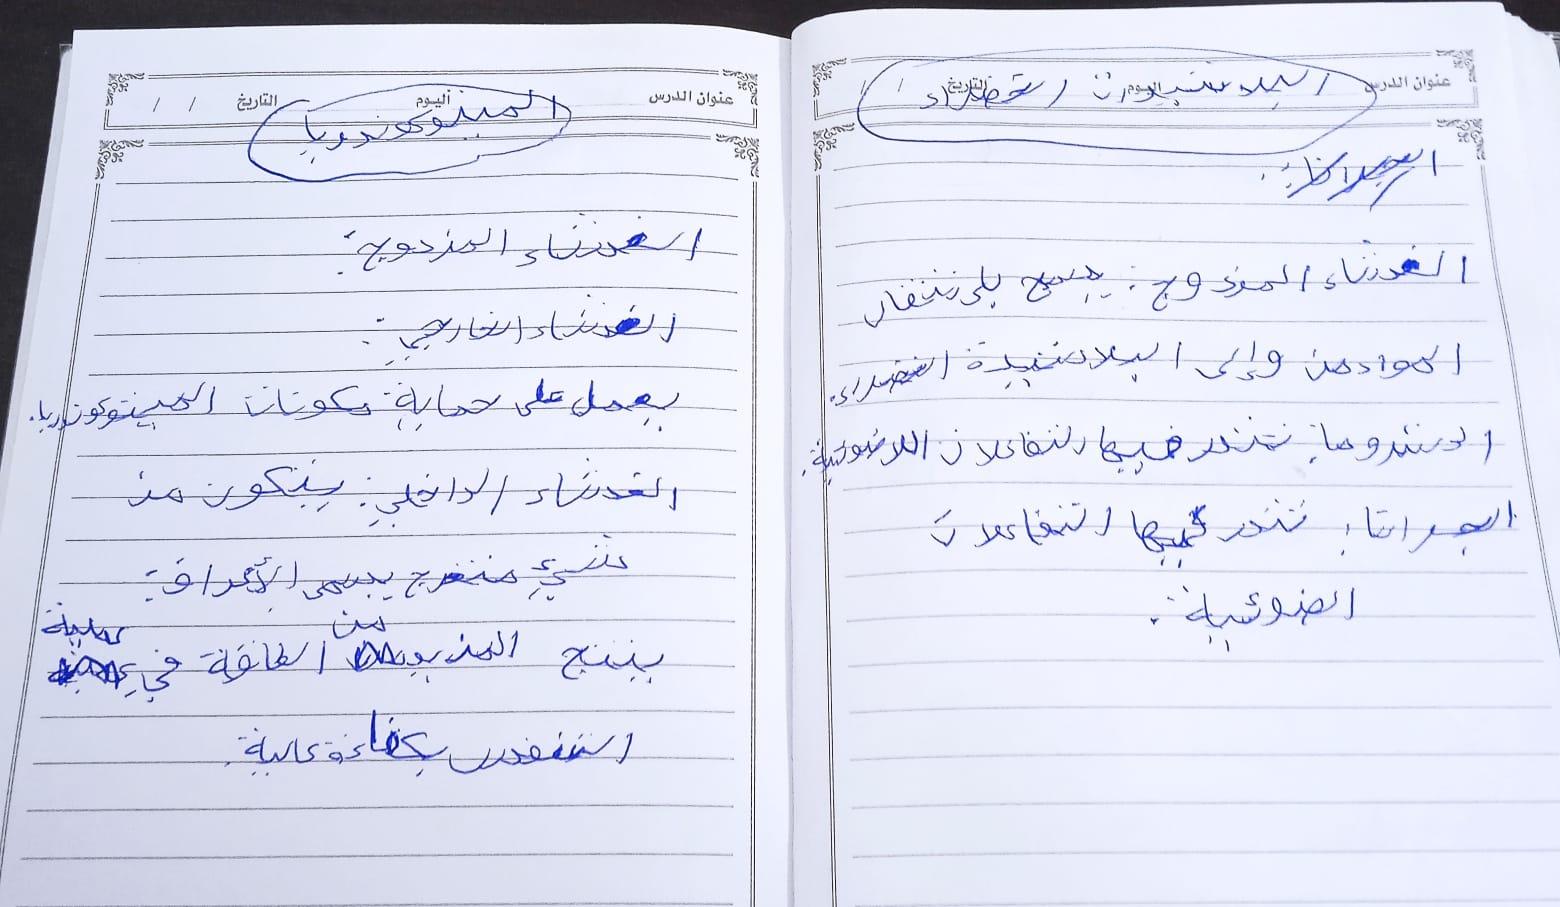 عنوان الدرس اليوم التاريخ / /
البلاستيدات الخضراء
الغشاء المزدوج: يسمح بلانتقال
المواد من وإلى البلاستيدة الخضراء.
الستروما: تتندر فيها التفاعلات اللاضوئية.
الجرانا: تتندر فيها التفاعلات
الضوئية.
عنوان الدرس اليوم التاريخ / /
الميتوكوندريا
الغشاء المزدوج:
الغشاء الخارجي:
يعمل على حماية مكونات الميتوكوندريا.
الغشاء الداخلي: يتكون من
شيء متعرج يسمى الأعراف:
ينتج المزيد من الطاقة في عملية
التنفس بكفاءة عالية.